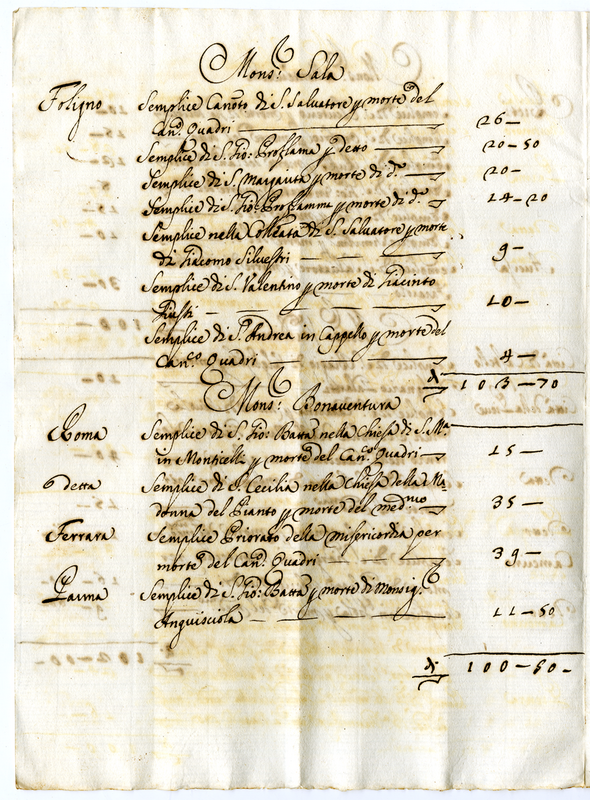 Mons.r Sala
Foligno Semplice Can.to di S. Salvatore p morte del
Can.o Quadri 26 —
Semplice di S. Gio: p detto 20 — 50
Semplice di S. Margarita p morte di d.o 20 —
Semplice di S. Gio: p morte di d.o 14 — 20
Semplice nella Colleg.ata di S. Salvatore p morte
di Giacomo Silvestri 9 —
Semplice di S. Valentino p morte di Giacinto
Giusti 10 —
Semplice di S. Andrea in Cappello p morte del
Can.co Quadri 4 —
103 — 70
Mons.r Bonaventura
Roma Semplice di S. Gio: Batta nella Chiesa di S. M.a
in Monticelli p morte del Can.co Quadri 15 —
detta Semplice di S. Cecilia nella Chiesa della Ma-
donna del Pianto p morte del med.mo 35 —
Ferrara Semplice Priorato della Misericordia per
morte del Can.o Quadri 39 —
Parma Semplice di S. Gio: Batta p morte di Monsig.r
Anguisciola 11 — 50
100 — 50 —